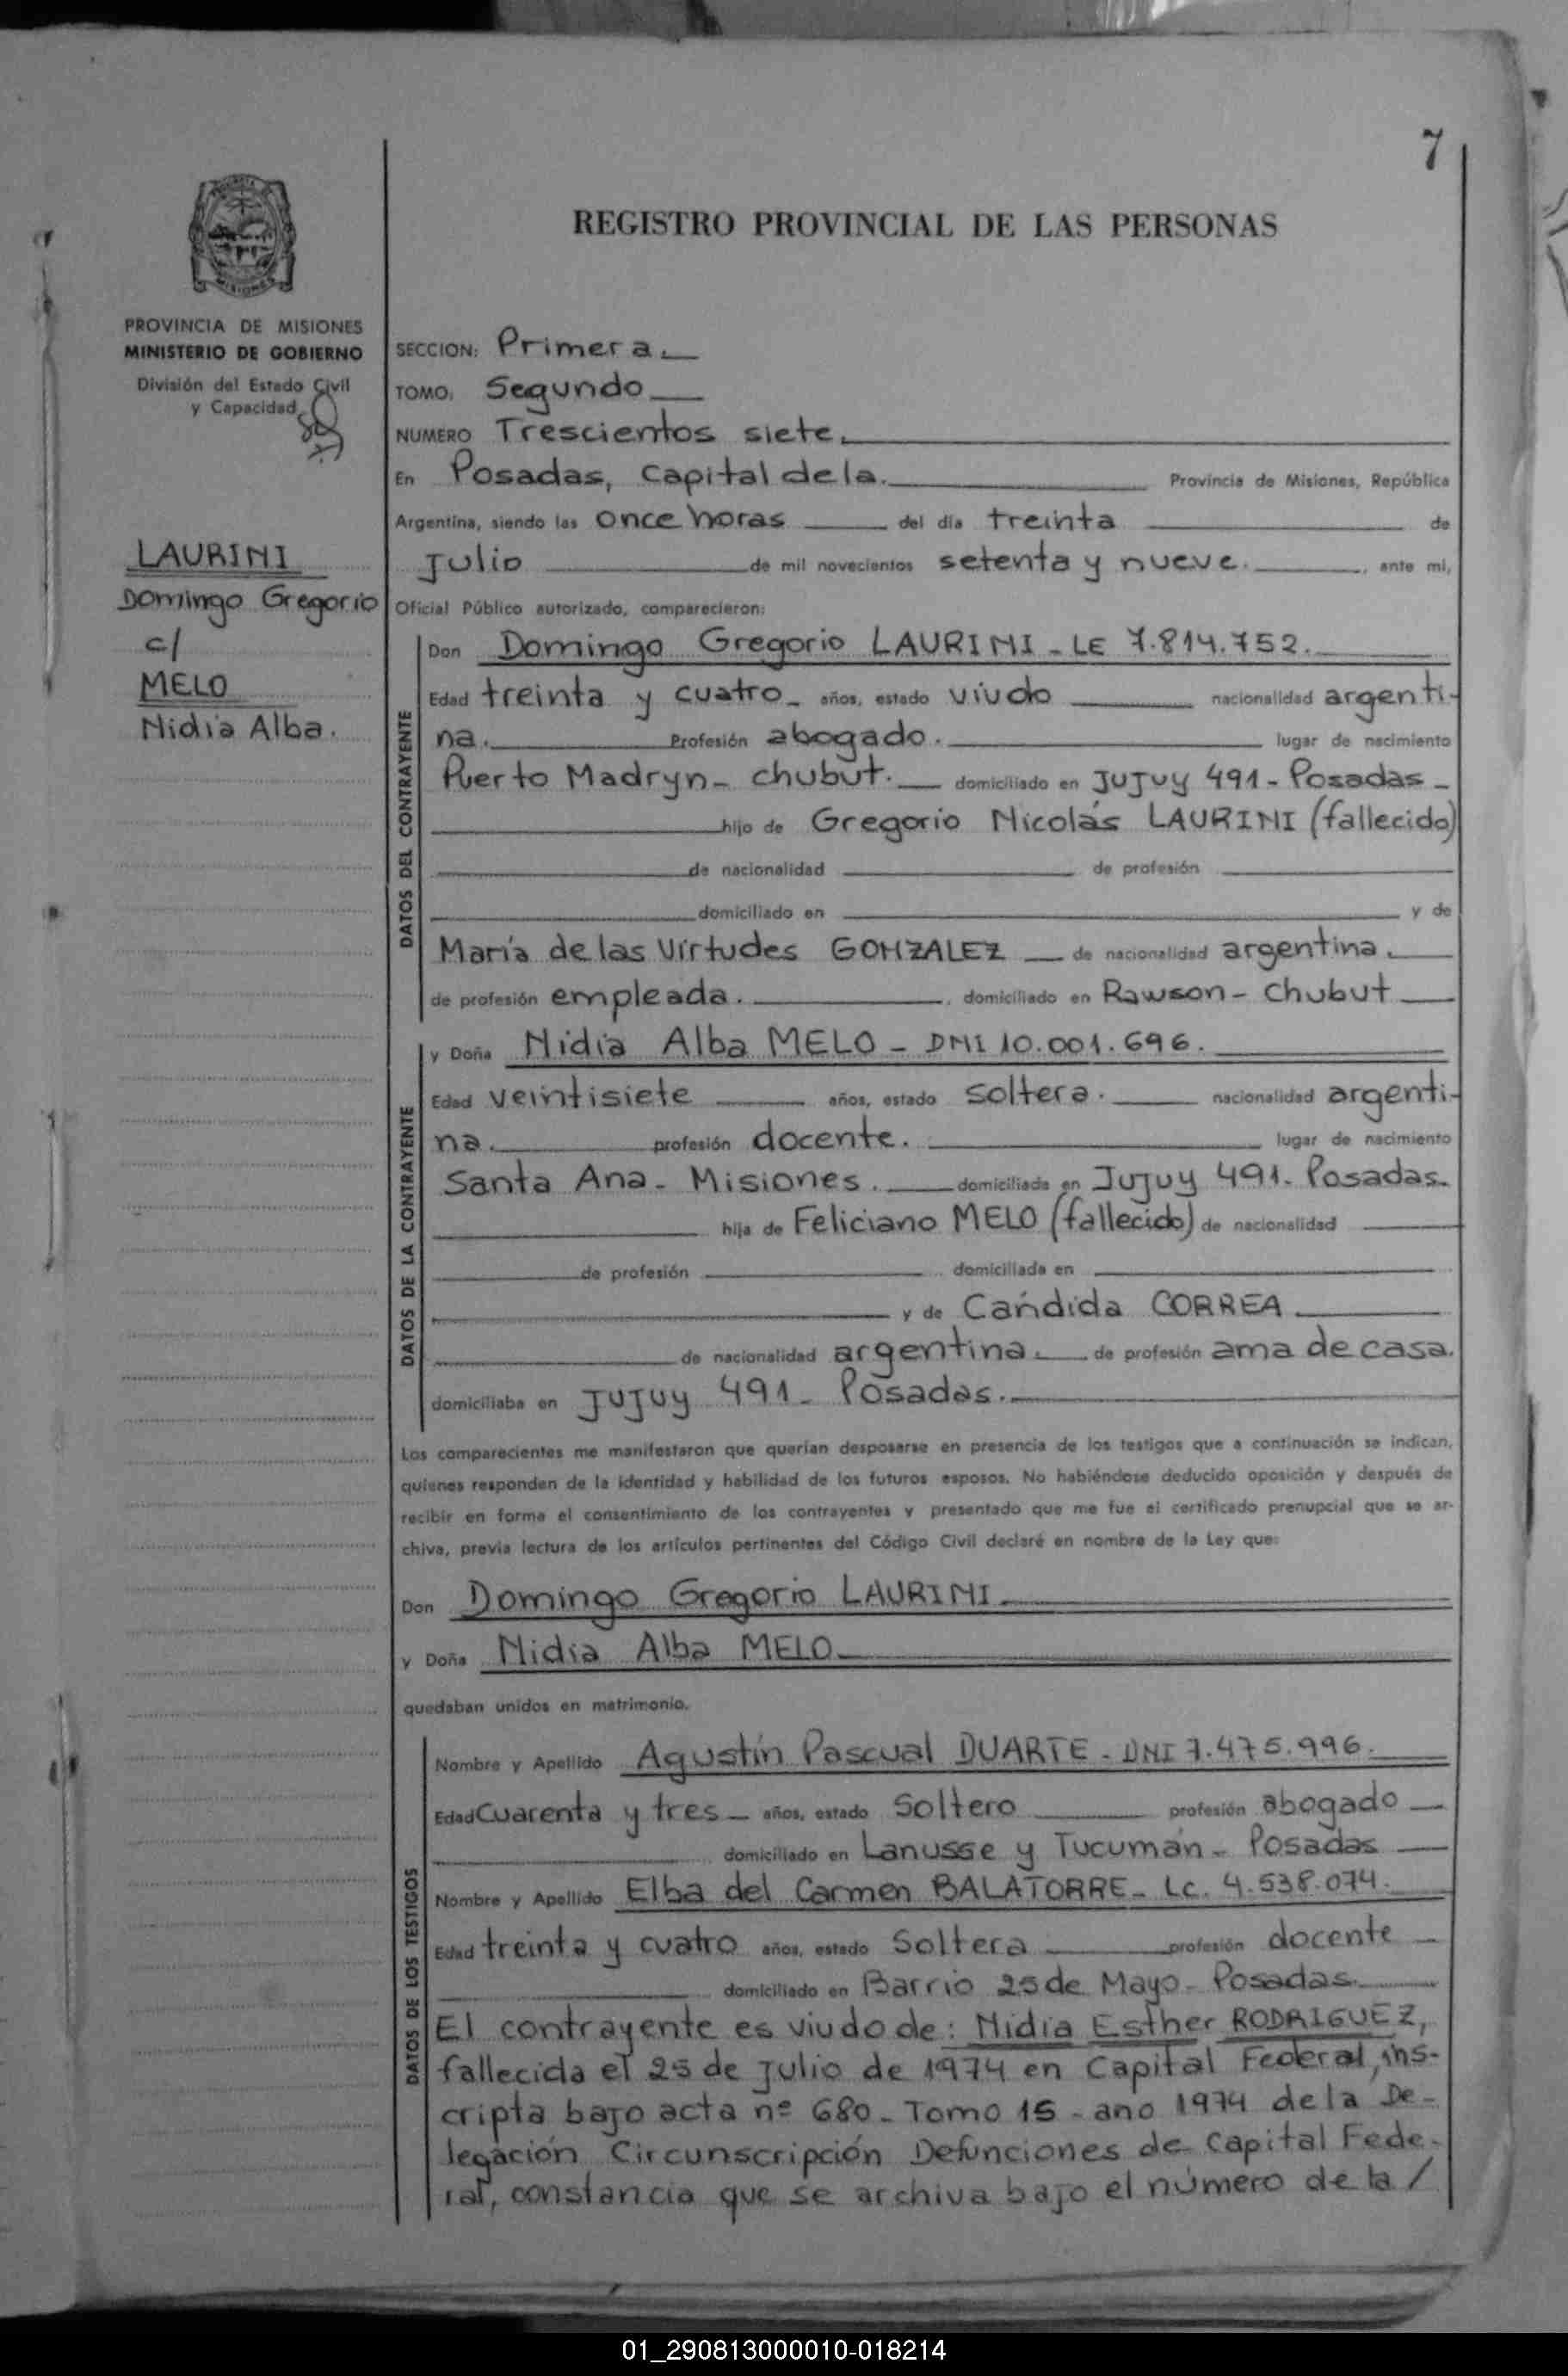 7
REGISTRO PROVINCIAL DE LAS PERSONAS
PROVINCIA DE MISIONES
MINISTERIO DE GOBIERNO
División del Estado Civil
y Capacidad
LAURINI
Domingo Gregorio
c/
MELO
Nidia Alba.
SECCION: Primera.
TOMO: Segundo
NUMERO Trescientos siete.
En Posadas, Capital de la. Provincia de Misiones, República
Argentina, siendo las once horas del día treinta de
Julio de mil novecientos setenta y nueve. , ante mi,
Oficial Público autorizado, comparecieron:
DATOS DEL CONTRAYENTE
Don Domingo Gregorio LAURINI - LE 7.814.752.
Edad treinta y cuatro - años, estado viudo nacionalidad argenti-
na. Profesión abogado. lugar de nacimiento
Puerto Madryn - chubut. domiciliado en Jujuy 491 - Posadas -
hijo de Gregorio Nicolás LAURINI (fallecido)
de nacionalidad de profesión
domiciliado en y de
María de las Virtudes GONZALEZ de nacionalidad argentina.
de profesión empleada. , domiciliado en Rawson - chubut
DATOS DE LA CONTRAYENTE
y Doña Nidia Alba MELO - DNI 10.001.696.
Edad veintisiete años, estado soltera. nacionalidad argenti-
na. profesión docente. lugar de nacimiento
Santa Ana - Misiones. domiciliada en Jujuy 491 - Posadas.
hija de Feliciano MELO (fallecido) de nacionalidad
de profesión domiciliada en
y de Cándida CORREA
de nacionalidad argentina. de profesión ama de casa.
domiciliaba en Jujuy 491 - Posadas.
Los comparecientes me manifestaron que querían desposarse en presencia de los testigos que a continuación se indican,
quienes responden de la identidad y habilidad de los futuros esposos. No habiéndose deducido oposición y después de
recibir en forma el consentimiento de los contrayentes y presentado que me fue el certificado prenupcial que se ar-
chiva, previa lectura de los artículos pertinentes del Código Civil declaré en nombre de la Ley que:
Don Domingo Gregorio LAURINI
y Doña Nidia Alba MELO
quedaban unidos en matrimonio.
DATOS DE LOS TESTIGOS
Nombre y Apellido Agustín Pascual DUARTE - DNI 7.475.996.
Edad Cuarenta y tres - años, estado Soltero profesión abogado
domiciliado en Lanusse y Tucumán - Posadas
Nombre y Apellido Elba del Carmen BALATORRE - Lc. 4.538.074.
Edad treinta y cuatro años, estado Soltera profesión docente
domiciliado en Barrio 25 de Mayo - Posadas.
El contrayente es viudo de: Nidia Esther RODRIGUEZ,
fallecida el 25 de Julio de 1974 en Capital Federal, ins-
cripta bajo acta nº 680 - Tomo 1S - ano 1974 de la De-
legación Circunscripción Defunciones de Capital Fede-
ral, constancia que se archiva bajo el número de la /
01_290813000010-018214